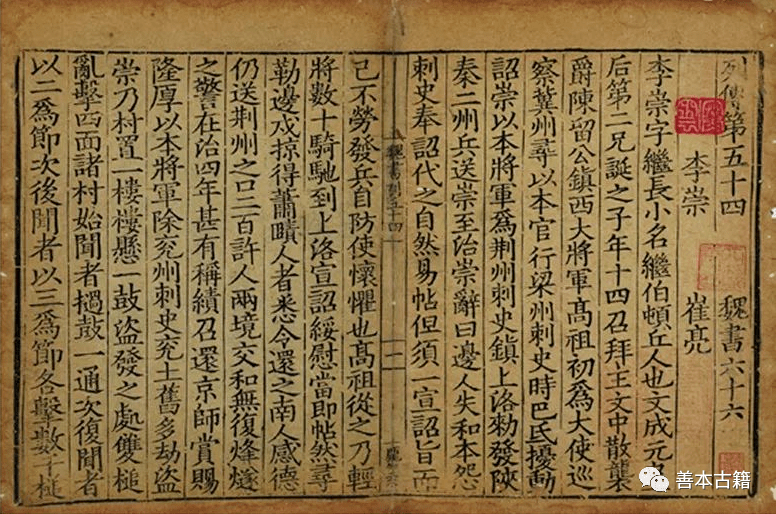 列傳第五十四 魏書六十六
李崇 崔亮
李崇字繼長小名繼伯頓丘人也文成元皇
后第二兄誕之子年十四召拜主文中散襲
爵陳留公鎮西大將軍髙祖初爲大使巡
察冀州尋以本官行梁州刺史時巴氐擾動
詔崇以本將軍爲荆州刺史鎮上洛勑發陝
秦二州兵送崇至治崇辭曰邊人失和本怨
刺史奉詔代之自然易帖但須一宣詔旨而
己不勞發兵自防使懷懼也髙祖從之乃輕
將數十騎馳到上洛宣詔綏慰當即帖然尋
勒邊戍掠得蕭賾人者悉令還之南人感德
仍送荆州之口二百許人兩境交和無復烽燧
之警在治四年甚有稱績召還京師賞賜
隆厚以本將軍除兖州刺史兖土舊多劫盜
崇乃村置一樓樓懸一鼓盜發之處雙槌
亂擊四面諸村始聞者撾鼓一通次復聞者
以二爲節次後聞者以三爲節各擊數千槌
魏書列五十四
一
善本古籍